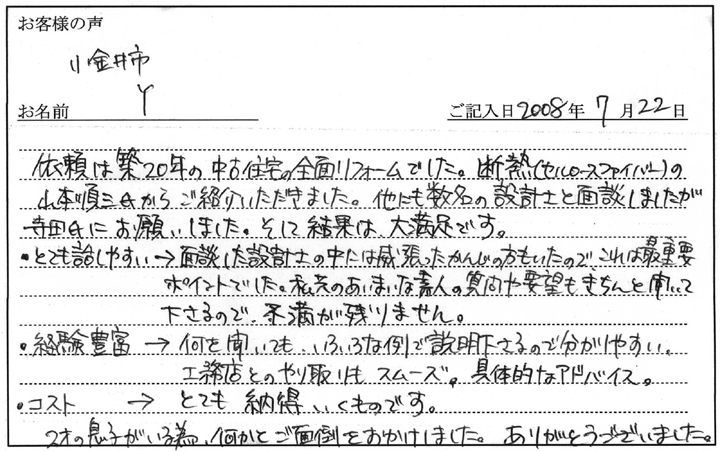 お客様の声
小金井市
お名前 Y ご記入日2008年 7月22日
依頼は築20年の中古住宅の全面リフォームでした。断熱(セルロースファイバー)の
山本順三氏からご紹介いただきました。他にも数名の設計士と面談しましたが
寺田氏にお願いしました。そして結果は大満足です。
・とても話しやすい→面談した設計士の中には威張ったかんじの方もいたので、これは最重要
ポイントでした。私共のあいまいな素人の質問や要望もきちんと聞いて
下さるので、不満が残りません。
・経験豊富 → 何を聞いても、いろいろな例で説明下さるので分かりやすい。
工務店とのやり取りもスムーズ。具体的なアドバイス。
・コスト → とても納得いくものです。
2才の息子がいる為、何かとご面倒をおかけしました。ありがとうございました。